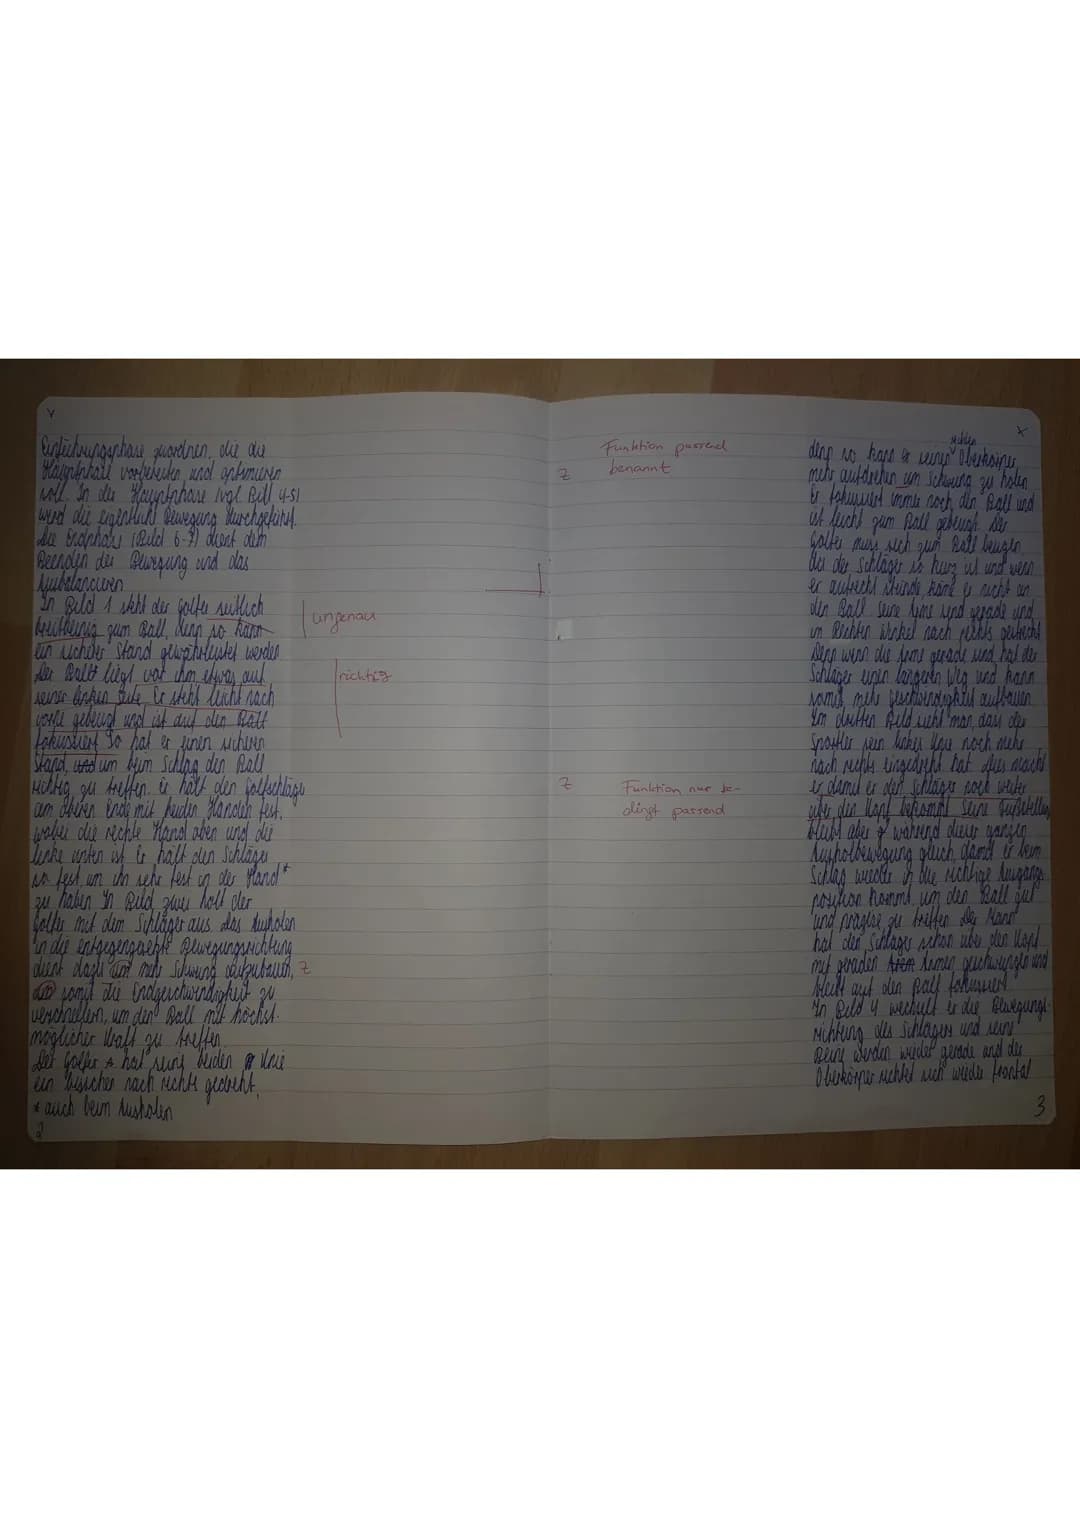 Einführungsphase zuordnen, die die
Hauptphase vorbereiten und optimieren
soll. In der Hauptphase (vgl. Bild 4-5)
wird die eigentliche Bewegung durchgeführt.
Die Endphase (Bild 6-7) dient dem
Beenden der Bewegung und das
Ausbalancieren.
In Bild 1 steht der Golfer seitlich
breitbeinig zum Ball, denn so kann
ein sicherer Stand gewährleistet werden.
Der Ball liegt vor ihm etwas auf
seiner linken Seite. Er steht leicht nach
vorne gebeugt und ist auf den Ball
fokussiert. So hat er einen sicheren
Stand, um beim Schlag den Ball
richtig zu treffen. Er hält den Golfschläger
am oberen Ende mit beiden Händen fest,
wobei die rechte Hand oben und die
linke unten ist. Er hält den Schläger
so fest, um ihn sehr fest in der Hand*
zu haben. In Bild zwei holt der
Golfer mit dem Schläger aus. Das Ausholen
in die entgegengesetzte Bewegungsrichtung
dient dazu um mehr Schwung aufzubauen, Z
somit die Endgeschwindigkeit zu
verschnellern, um den Ball mit höchst-
möglicher Kraft zu treffen.
Der Golfer hat seine beiden Knie
ein bisschen nach rechts gedreht,
* auch beim Ausholen
2
ungenau
richtig
Funktion passend
Z benannt
Z Funktion nur be-
dingt passend
denn so kann er seinen Oberkörper
mehr aufdrehen um Schwung zu holen.
Er fokussiert immer noch den Ball und
ist leicht zum Ball gebeugt. Der
Golfer muss sich zum Ball beugen,
da der Schläger so kurz ist und wenn
er aufrecht stünde käme er nicht an
den Ball. Seine Arme sind gerade und
im Rechten Winkel nach rechts gestreckt.
Denn wenn die Arme gerade sind, hat der
Schläger einen längeren Weg und kann
somit mehr Geschwindigkeit aufbauen.
Im dritten Bild sieht man, dass der
Sportler sein linkes Knie noch mehr
nach rechts eingedreht hat. Dies macht
er damit er den Schläger noch weiter
über den Kopf bekommt. Seine Fußstellung
bleibt aber während dieser ganzen
Ausholbewegung gleich, damit er beim
Schlag wieder in die richtige Ausgangs-
position kommt, um den Ball gut
und präzise zu treffen. Der Mann
hat den Schläger schon über den Kopf
mit geraden Armen geschwungen und
bleibt auf den Ball fokussiert.
In Bild 4 wechselt er die Bewegungs-
richtung des Schlägers und seine
Beine werden wieder gerade und der
Oberkörper richtet sich wieder frontal
3